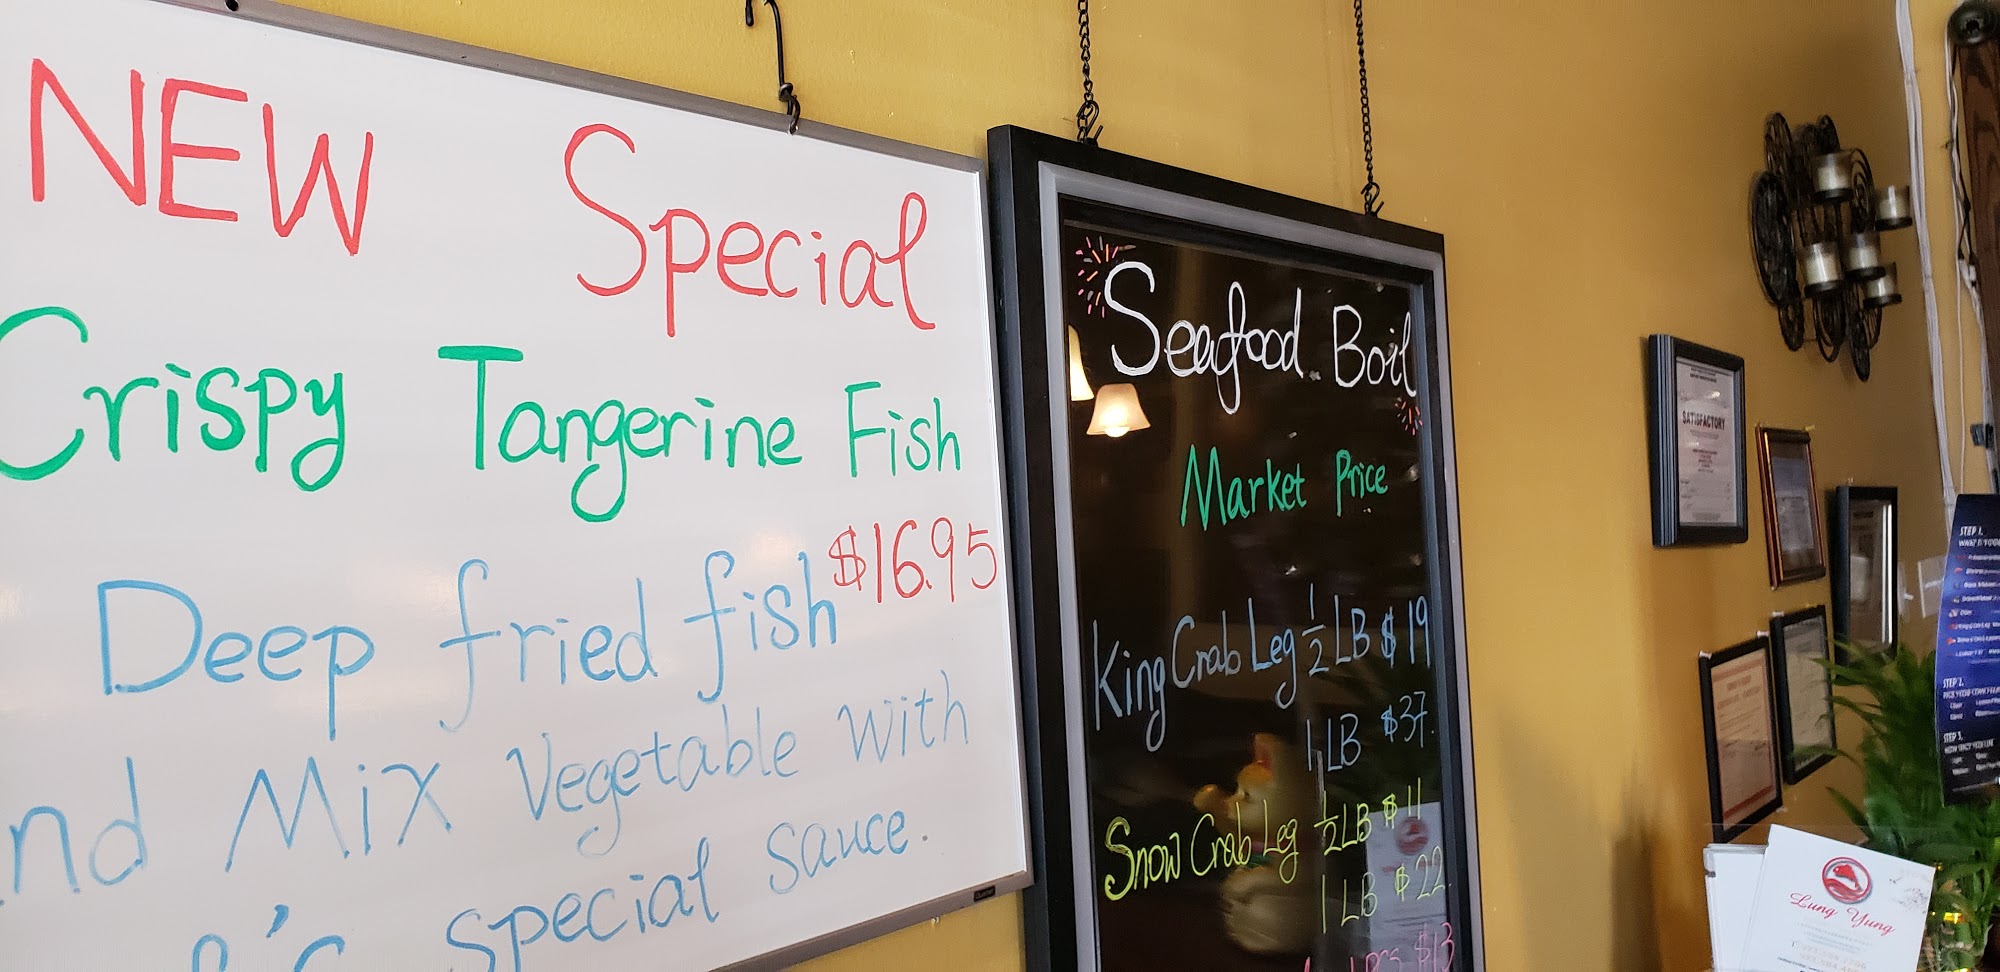 NEW Special
Crispy Tangerine Fish
$16.95
Deep fried fish
and Mix Vegetable with
special sauce.
Seafood Boil
Market Price
King Crab Leg 1/2 LB $19
1 LB $37.
Snow Crab Leg 1/2 LB $11
1 LB $22.
$13
SATISFACTORY
STEP 1.
STEP 2.
STEP 3.
Lung Yung